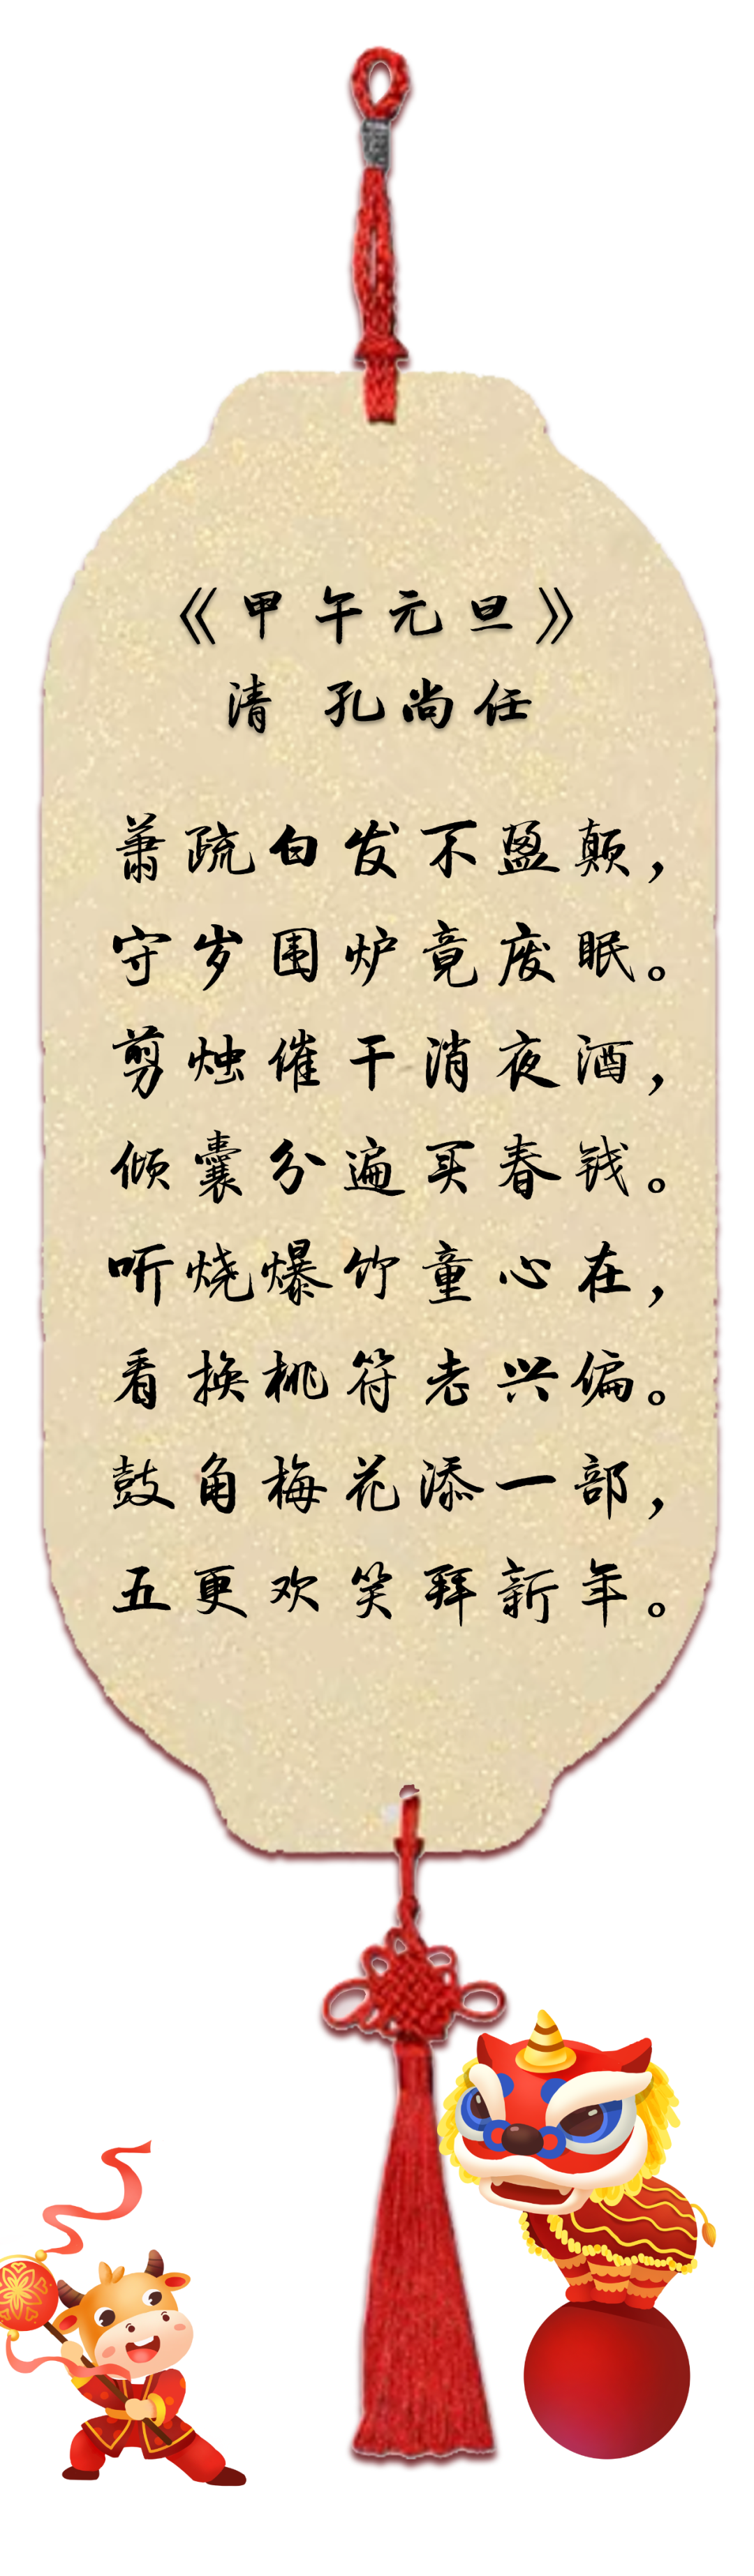 《甲午元旦》
清 孔尚任
萧疏白发不盈颠，
守岁围炉竟废眠。
剪烛催干消夜酒，
倾囊分遍买春钱。
听烧爆竹童心在，
看换桃符老兴偏。
鼓角梅花添一部，
五更欢笑拜新年。